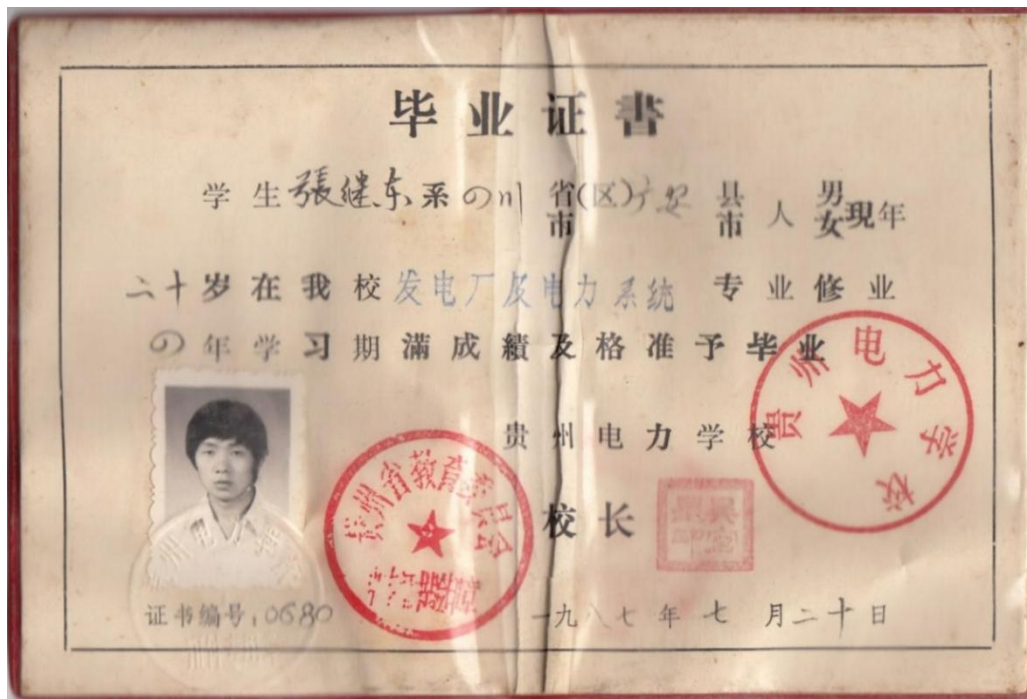 毕业证书
学生張继东系四川省市(区)广安县市人男女現年
二十岁在我校发电厂及电力系统专业修业
四年学习期满成績及格准予毕业
贵州电力学校
贵州电力学校
校长
贵州省教育委员会
证书编号:0680
一九八七年七月二十日